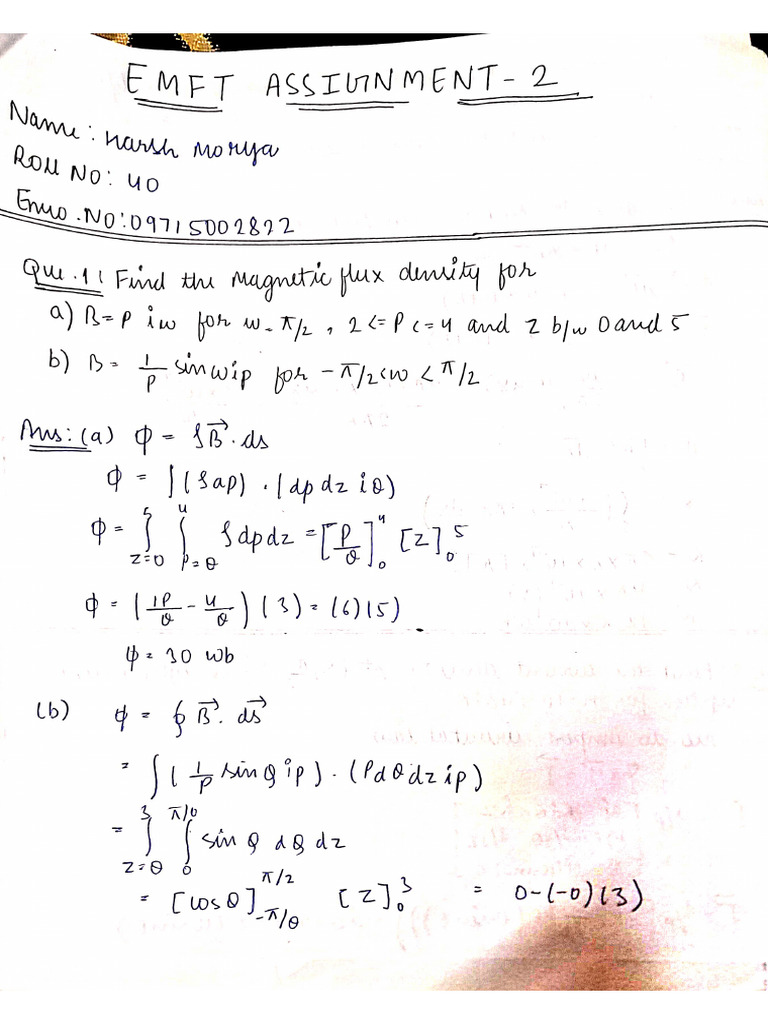 EMFT ASSIGNMENT-2
Name: Harsh Morya
Roll No: 40
Enro.No:09715002822
Que.1: Find the Magnetic flux density for
a) B=P iw for w-π/2, 2<=P<=4 and Z b/w 0 and 5
b) B= 1/P sinwip for -π/2<w<π/2
Ans: (a) φ = ∫B⃗.ds
φ = ∫(ʃap).(dpdz iθ)
φ = ∫_{z=0}^{5} ∫_{p=θ}^{4} ʃdpdz = [P/θ]_0^4 [Z]_0^5
φ = (1P/θ - 4/θ)(3) = (6)(5)
φ = 30 wb
(b) φ = ∮B⃗.ds⃗
= ∫(1/P sinθip).(Pdθdzip)
= ∫_{z=θ}^{3} ∫_0^{π/0} sinθ dθ dz
= [cosθ]_{-π/θ}^{π/2} [Z]_0^3 = 0-(-0)(3)